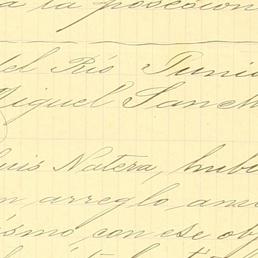 a la posesion
del Río Juni
Miguel Sanch
Luis Natera, hubo
un arreglo, ami
ismo, con ese obj